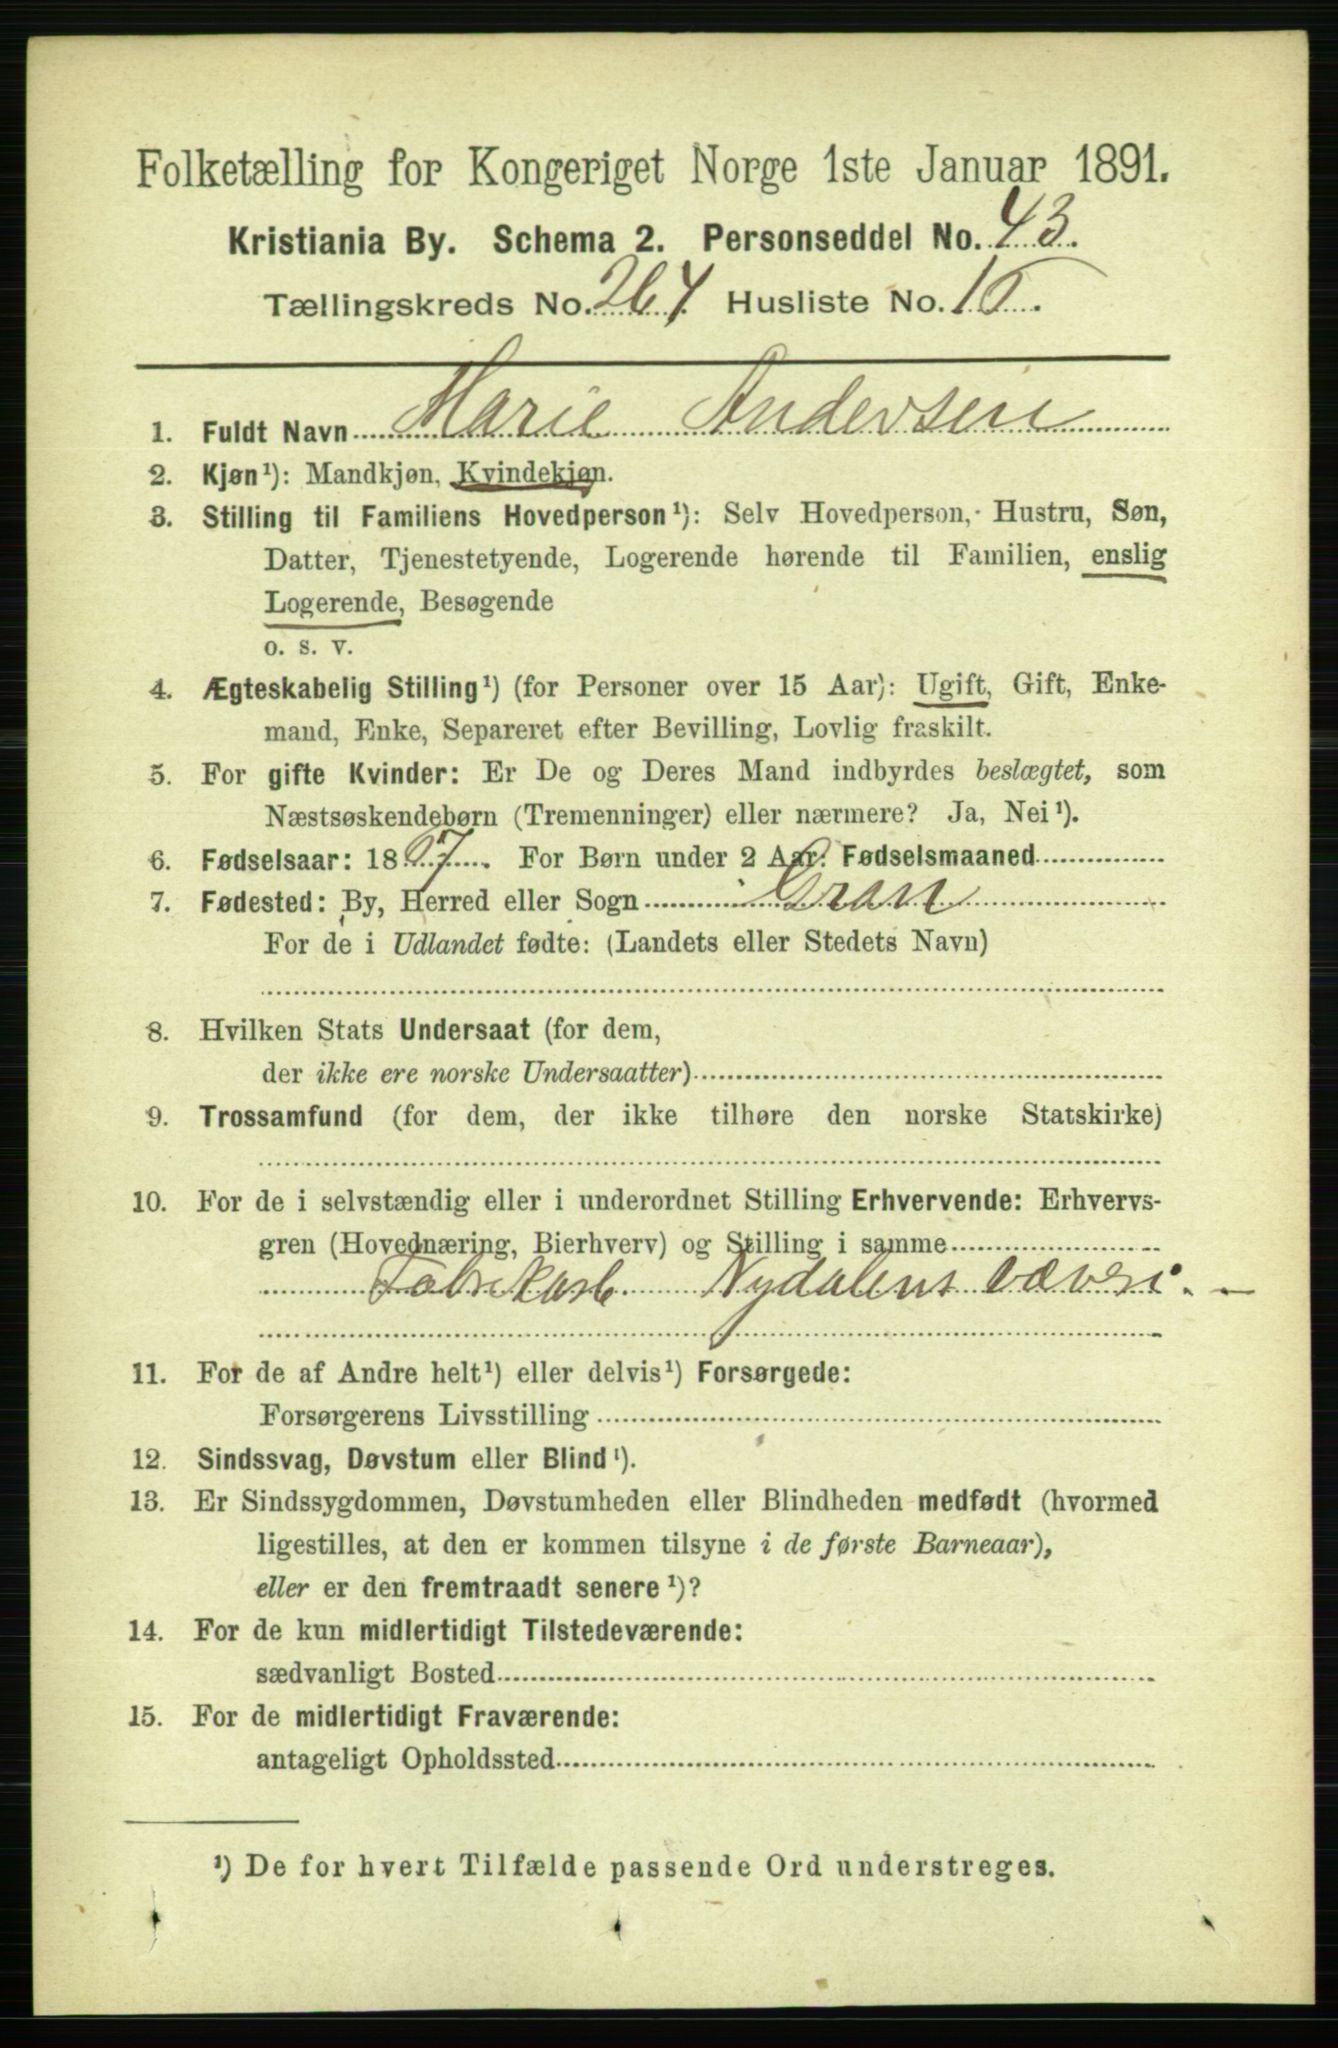 Folketælling for Kongeriget Norge 1ste Januar 1891.
Kristiania By. Schema 2. Personseddel No. 43.
Tællingskreds No. 264 Husliste No. 15.
1. Fuldt Navn Marie Andersen
2. Kjøn¹): Mandkjøn, Kvindekjøn.
3. Stilling til Familiens Hovedperson¹): Selv Hovedperson, Hustru, Søn,
Datter, Tjenestetyende, Logerende hørende til Familien, enslig
Logerende, Besøgende
o. s. v.
4. Ægteskabelig Stilling¹) (for Personer over 15 Aar): Ugift, Gift, Enke-
mand, Enke, Separeret efter Bevilling, Lovlig fraskilt.
5. For gifte Kvinder: Er De og Deres Mand indbyrdes beslægtet, som
Næstsøskendebørn (Tremenninger) eller nærmere? Ja, Nei¹).
6. Fødselsaar: 18 . For Børn under 2 Aar: Fødselsmaaned
7. Fødested: By, Herred eller Sogn Gran
For de i Udlandet fødte: (Landets eller Stedets Navn)
8. Hvilken Stats Undersaat (for dem,
der ikke ere norske Undersaatter)
9. Trossamfund (for dem, der ikke tilhøre den norske Statskirke)
10. For de i selvstændig eller i underordnet Stilling Erhvervende: Erhvervs-
gren (Hovednæring, Bierhverv) og Stilling i samme
Fabrikarb. Nydalens væveri. -
11. For de af Andre helt¹) eller delvis¹) Forsørgede:
Forsørgerens Livsstilling
12. Sindssvag, Døvstum eller Blind¹).
13. Er Sindssygdommen, Døvstumheden eller Blindheden medfødt (hvormed
ligestilles, at den er kommen tilsyne i de første Barneaar),
eller er den fremtraadt senere¹)?
14. For de kun midlertidigt Tilstedeværende:
sædvanligt Bosted
15. For de midlertidigt Fraværende:
antageligt Opholdssted
¹) De for hvert Tilfælde passende Ord understreges.